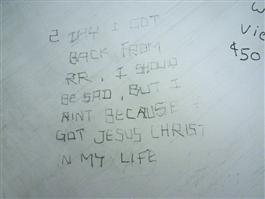 2 DAY I GOT
BACK FROM
RR, I SHOUD
BE SAD, BUT I
AINT BECAUSE I
GOT JESUS CHRIST
N MY LIFE
$50